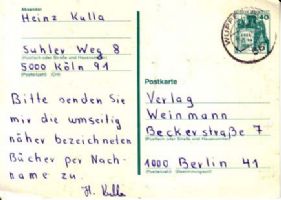 Absender
Heinz Kulla
Suhler Weg 8
(Postfach oder Straße und Hausnummer)
5000 Köln 91
(Postleitzahl) (Ort)
Bitte senden Sie
mir die umseitig
näher bezeichneten
Bücher per Nach-
name zu.
H. Kulla
40
Postkarte
Verlag
Weinmann
Beckerstraße 7
(Postfach oder Straße und Hausnummer)
1000 Berlin 41
(Postleitzahl) (Bestimmungsort)